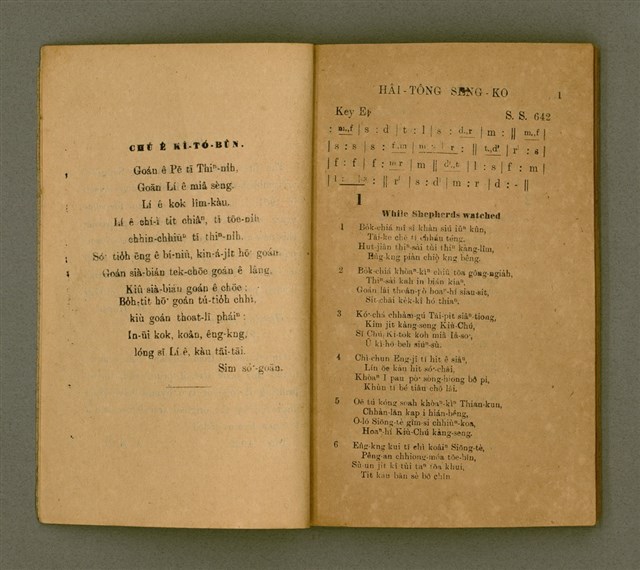 CHÚ Ê KÎ-TÓ-BÛN.
Goán ê Pē tī Thiⁿ-nih,
Goān Lí ê miâ sèng.
Lí ê kok lîm-kàu.
Lí ê chí-ì tit chiâⁿ, tī tōe-nih
chhin-chhiūⁿ tī thiⁿ-nih.
Só͘ tio̍h ēng ê bí-niû, kin-á-ji̍t hō͘ goán.
Goán sià-bián tek-chōe goán ê lâng,
Kiû sià-bián goán ê chōe;
Bo̍h-tit hō͘ goán tú-tio̍h chhì,
kiù goán thoat-lī pháiⁿ:
In-ūi kok, koân, êng-kng,
lóng sī Lí ê, kàu tāi-tāi.
Sim só͘-goān.
HÂI-TÔNG SENG-KO
1
Key E♭
S. S. 642
: m.,f | s : d | t : l | s : d.,r | m : || m.,f |
| s : s | s :
| f : f | f : m.r | m || : l | s : f | m |
: || r' | s : d' | m : r | d : - ||
1
While Shepherds watched
1 Bo̍k-chiá mî sî khàn siú iûⁿ kûn,
Tāi-ke chē tī chháu téng,
Hut-jiân thiⁿ-sài tùi thiⁿ kàng-lîm,
Êng-kng piàn chiò kng bêng.
2 Bo̍k-chiá khòaⁿ-kìⁿ chiū tōa gông-ngia̍h,
Thiⁿ-sài kah in bián kiaⁿ,
Goán lâi thoân-pò hoaⁿ-hí siau-sit,
Sit chāi ke̍k-kî hó thiaⁿ.
3 Kó͘-chá chhàm-gú Tāi-pi̍t siâⁿ-tiong,
Kim ji̍t kàng-seng Kiù-Chú,
Sī Chú Ki-tok koh miâ Iâ-so͘,
Ū kì-hō beh siūⁿ-sù.
4 Chì-chun Eng-jî tī hit ê siâⁿ,
Lín ōe kàu hit só͘-chāi,
Khòaⁿ I pau pò͘ sòng-hiong bô pí,
Khùn tī bé tiâu chô lāi.
5 Oē tú kóng soah khòaⁿ-kìⁿ Thian-kun,
Chhàn-lān kap i hián-bêng,
O-ló Siōng-tè gîm-si chhiùⁿ-koa,
Hoaⁿ-hí Kiù-Chú kàng-seng.
6 Êng-kng kui tī chì koâiⁿ Siōng-tè,
Pêng-an chhiong-móa tōe-bīn,
Sù un ji̍t kî tùi taⁿ tōa khui,
Tit kàu bān sè bô chīn